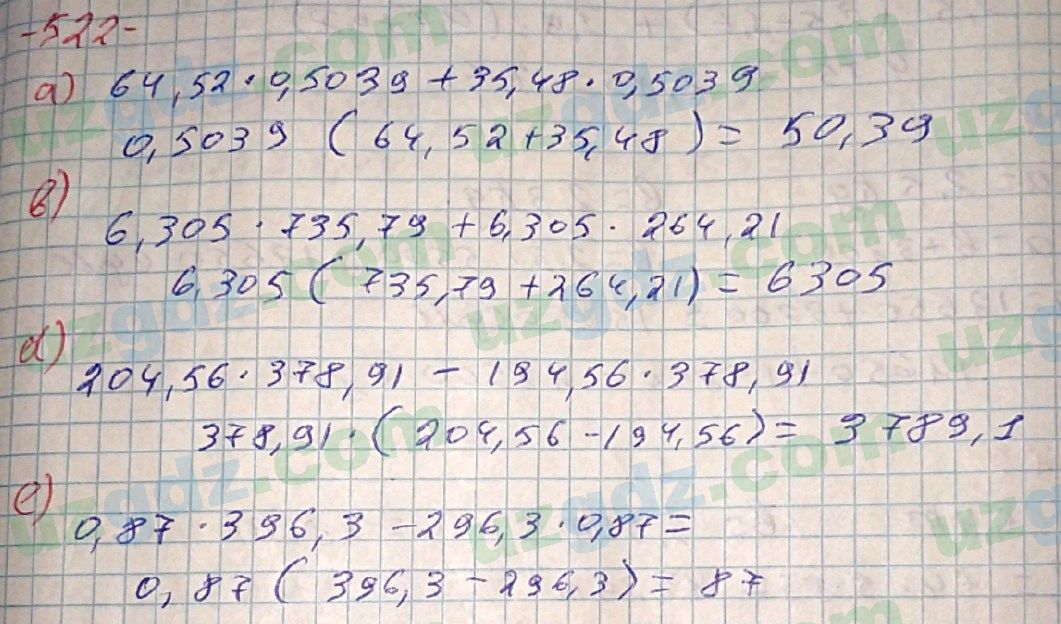 -522-
a) 64,52 · 0,5039 + 35,48 · 0,5039
0,5039 (64,52 + 35,48) = 50,39
b) 6,305 · 735,79 + 6,305 · 264,21
6,305 (735,79 + 264,21) = 6305
d) 204,56 · 378,91 - 194,56 · 378,91
378,91 · (204,56 - 194,56) = 3789,1
e) 0,87 · 396,3 - 296,3 · 0,87 =
0,87 (396,3 - 296,3) = 87
uzgdz.com